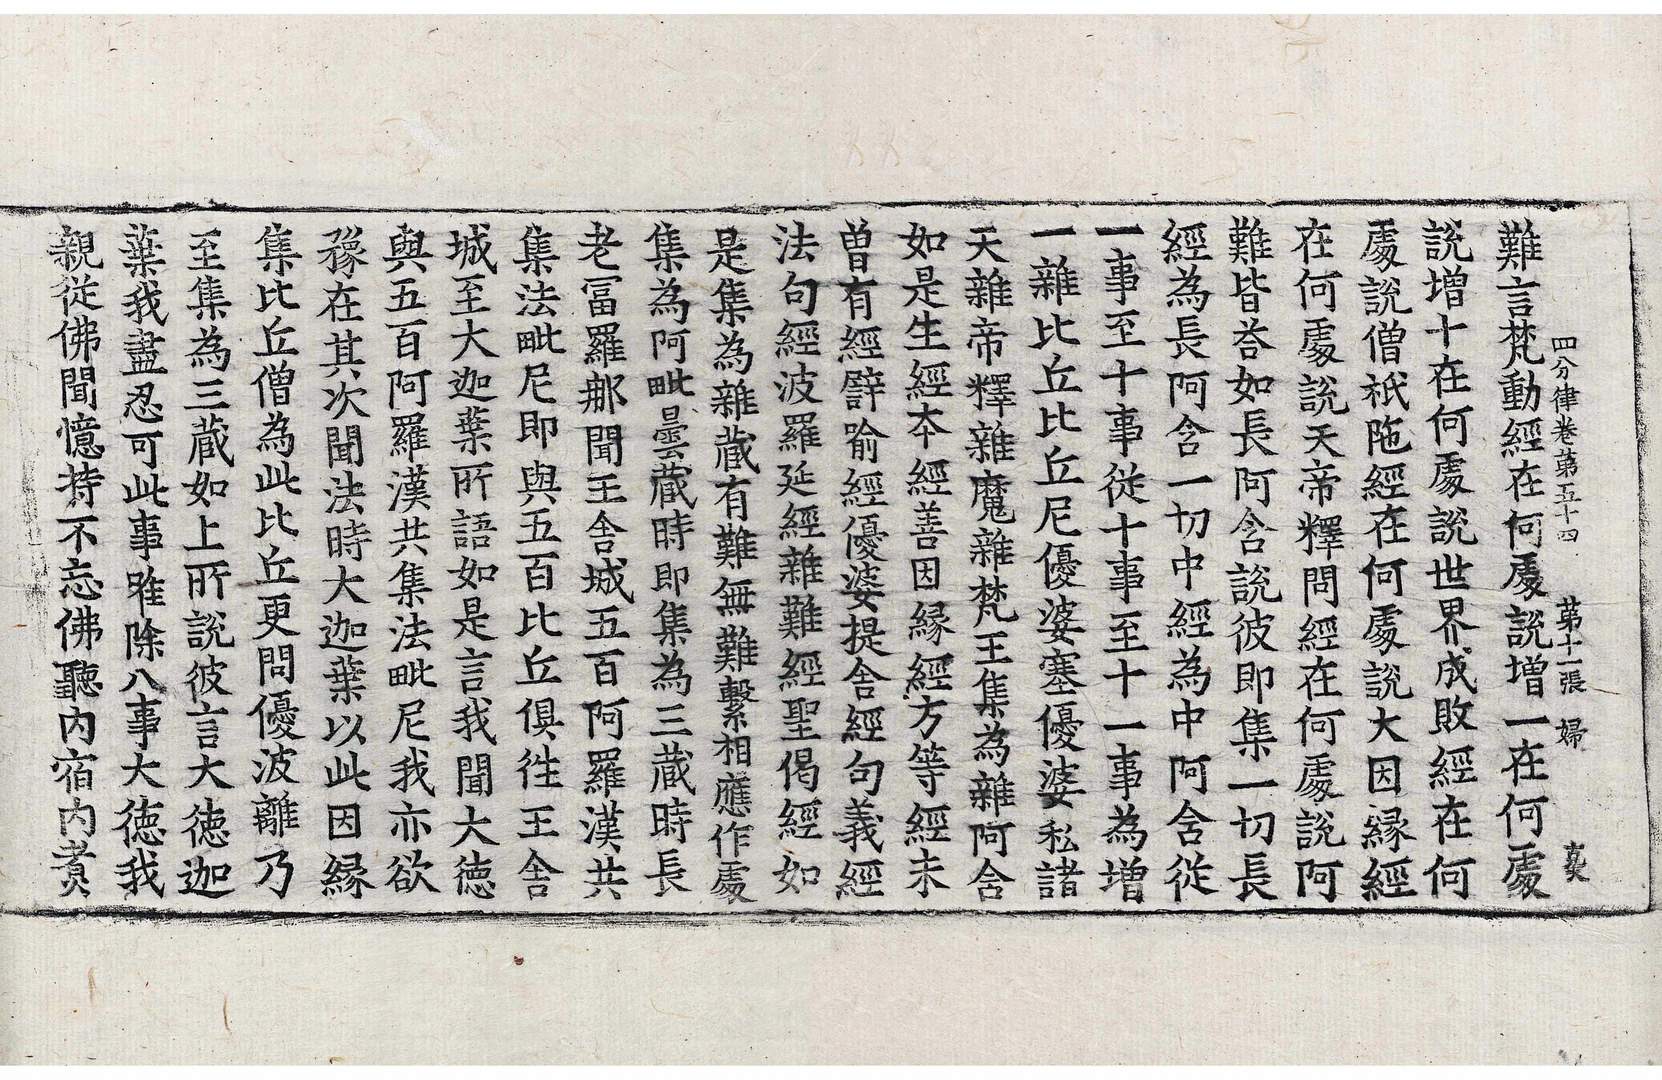 四分律卷第五十四 第十一張 婦
難言梵動經在何處說增一在何處
說增十在何處說世界成敗經在何
處說僧祇陁經在何處說大因緣經
在何處說天帝釋問經在何處說阿
難皆荅如長阿含說彼即集一切長
經為長阿含一切中經為中阿含從
一事至十事從十事至十一事為增
一雜比丘比丘尼優婆塞優婆私諸
天雜帝釋雜魔雜梵王集為雜阿含
如是生經本經善因緣經方等經未
曾有經譬喻經優婆提舍經句義經
法句經波羅延經雜難經聖偈經如
是集為雜藏有難無難繫相應作處
集為阿毗曇藏時即集為三藏時長
老冨羅那聞王舍城五百阿羅漢共
集法毗尼即與五百比丘俱往王舍
城至大迦葉所語如是言我聞大德
與五百阿羅漢共集法毗尼我亦欲
豫在其次聞法時大迦葉以此因緣
集比丘僧為此比丘更問優波離乃
至集為三藏如上所說彼言大德迦
葉我盡忍可此事唯除八事大德我
親從佛聞憶持不忘佛聽內宿內煑